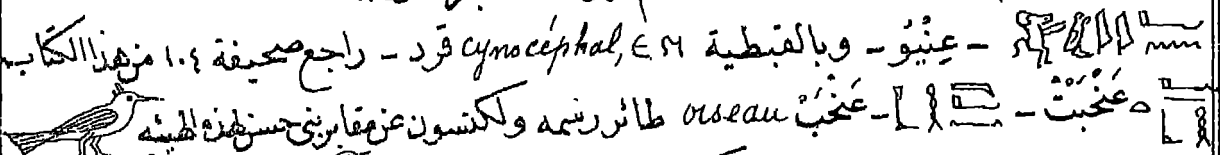 - عِنْيُو - وبالقبطية cynocéphal, ЄՈ قرد - راجع صحيفة ١٠٤ من هذا الكتاب
عَنْخِبَتْ - عَنْخَبْ oiseau طائر رسمه ولكنسون عن مقابر بنى حسن بهذه الهيئه